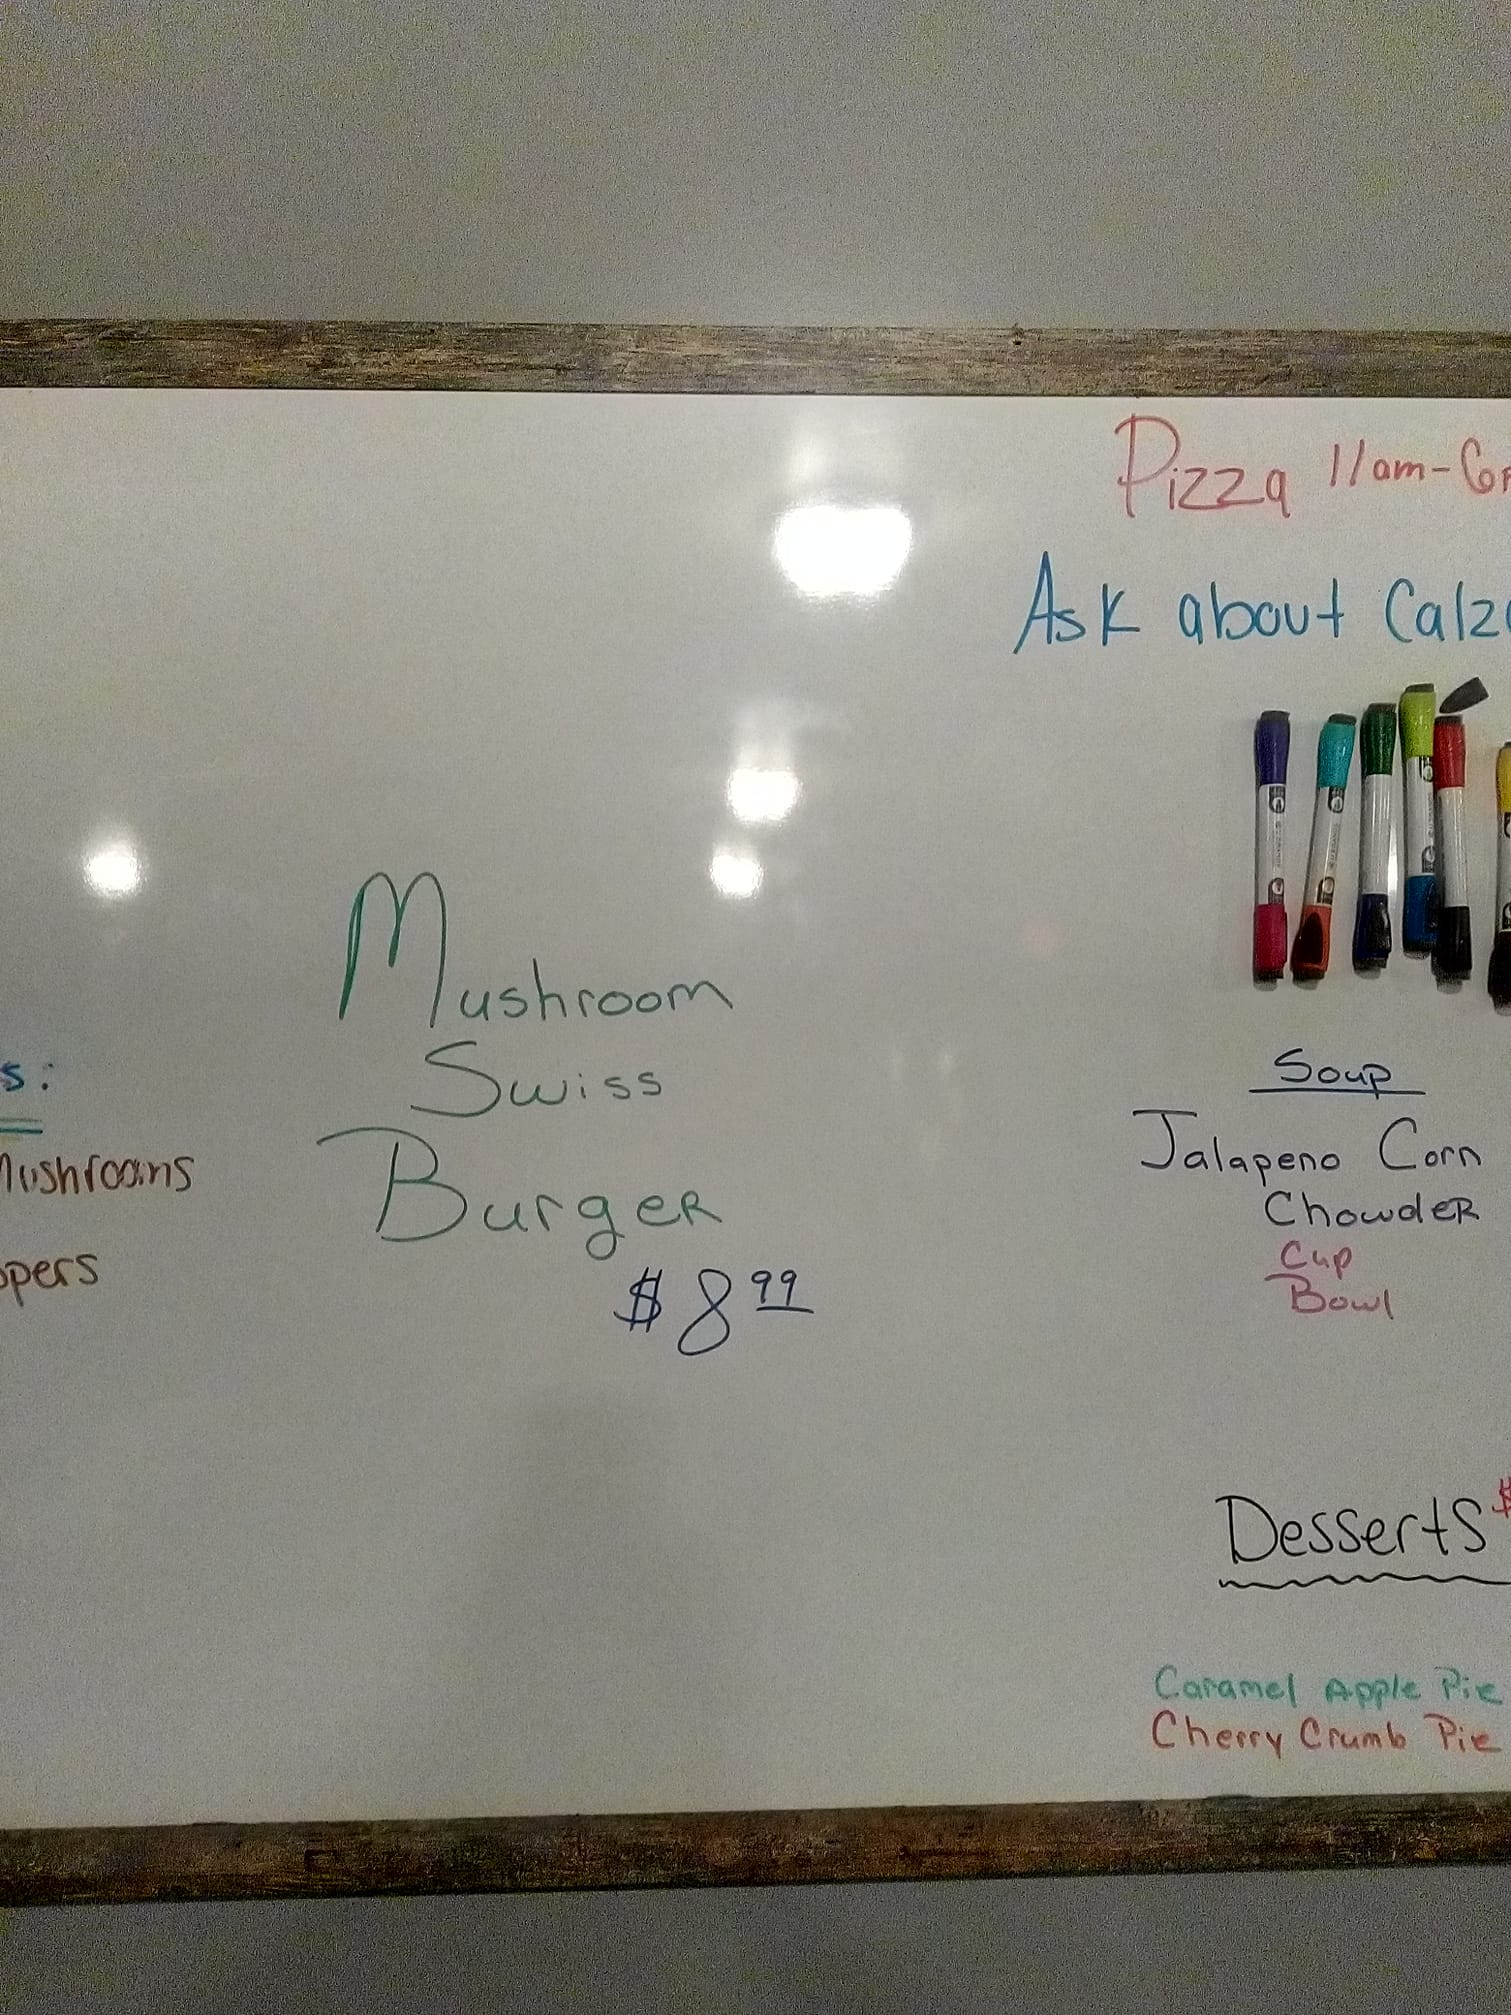 Pizza 11am-6
Ask about Calz
s:
Mushrooms
ppers
Mushroom
Swiss
Burger
$8.99
Soup
Jalapeno Corn
Chowder
Cup
Bowl
Desserts $
Caramel Apple Pie
Cherry Crumb Pie